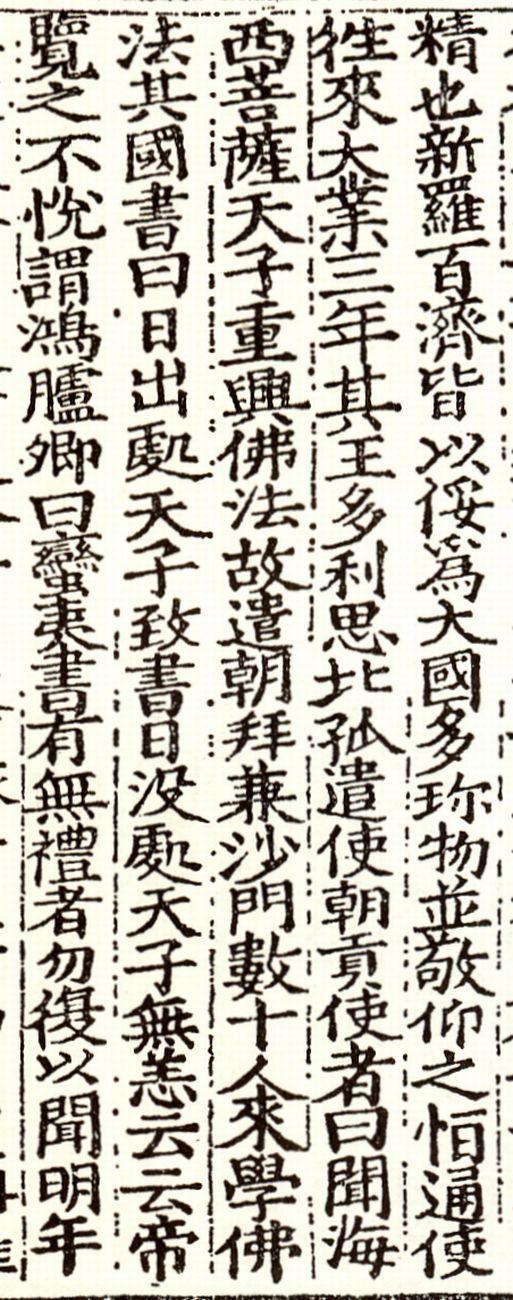 精也新羅百濟皆以俀爲大國多珎物並敬仰之恒通使
往來大業三年其王多利思比孤遣使朝貢使者曰聞海
西菩薩天子重興佛法故遣朝拜兼沙門數十人來學佛
法其國書曰日出處天子致書日没處天子無恙云云帝
覽之不恱謂鴻臚卿曰蠻夷書有無禮者勿復以聞明年